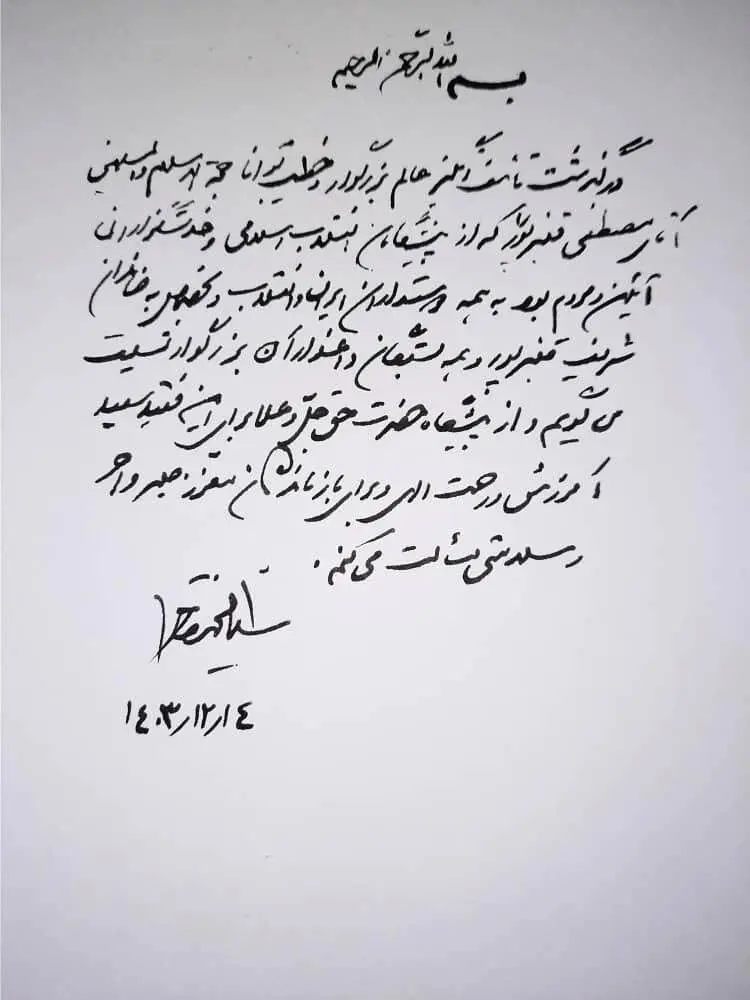 بسم الله الرحمن الرحیم
درگذشت تأسف انگیز عالم بزرگوار و خطیب توانا حجة الاسلام والمسلمین
آقای مصطفی قنبرپور که از پیشگامان انقلاب اسلامی و خدمتگزاران
آئین و مردم بود به همه دوستداران ایران و انقلاب و بخصوص به خاندان
شریف قنبرپور و همه بستگان داغدار آن بزرگوار تسلیت
می گویم و از پیشگاه حضرت حق جلّ و علا برای این فقید سعید
آمرزش و رحمت الهی و برای بازماندگان معزز صبر و اجر
و سلامتی مسألت می کنم.
۱۴۰۳٫۱۲٫۱۴